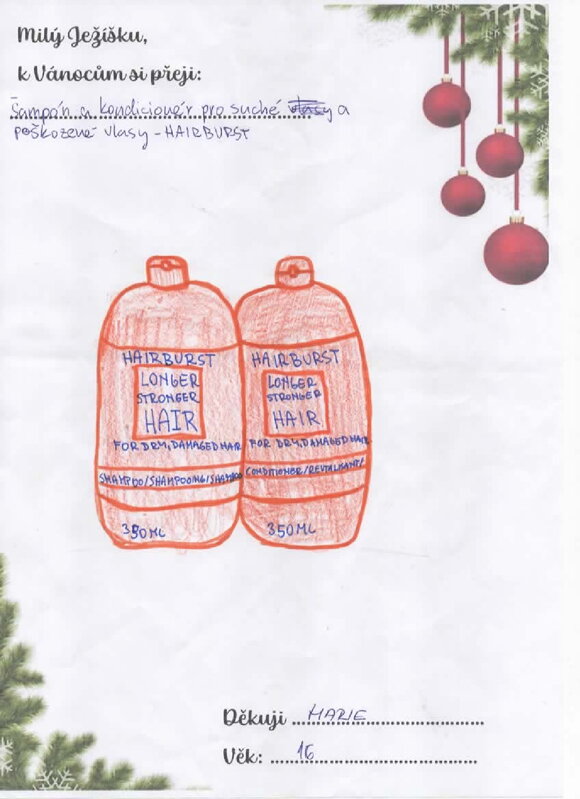 Milý Ježíšku,
k Vánocům si přeji:
Šampón a kondicionér pro suché vlasy a
poškozené vlasy - HAIRBURST
HAIRBURST
LONGER
STRONGER
HAIR
FOR DRY, DAMAGED HAIR
SHAMPOO/SHAMPOOING/SHAMPO
350ML
HAIRBURST
LONGER
STRONGER
HAIR
FOR DRY, DAMAGED HAIR
CONDITIONER/REVITALISANT/
350ML
Děkuji MARIE
Věk: 16